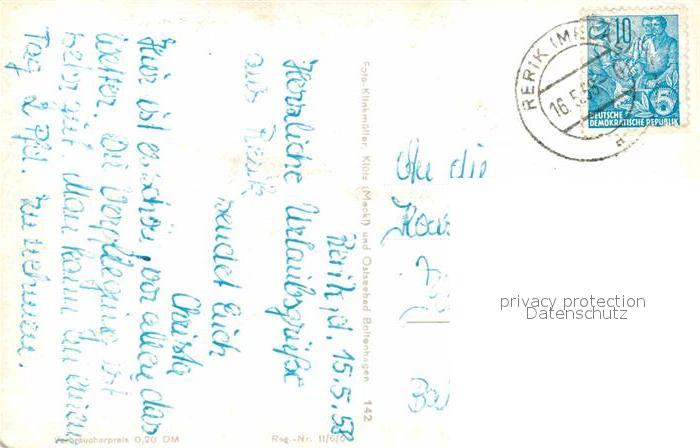 Rerik, d. 15.5.58
Herzliche Urlaubsgrüße
aus Rerik
sendet Euch
Christa
Hier ist es schön, vor allem das
Wetter. Die Verpflegung ist
sehr gut. Man kann an einem
Tag 2 Pfd. zunehmen.
Foto-Klinkmüller, Klütz (Meckl) und Ostseebad Boltenhagen 142
Verbraucherpreis 0,20 DM
Reg.-Nr. II/6/6
RERIK (MECKL
16.5.58
a
10
5
DEUTSCHE
DEMOKRATISCHE REPUBLIK
An die
privacy protection
Datenschutz